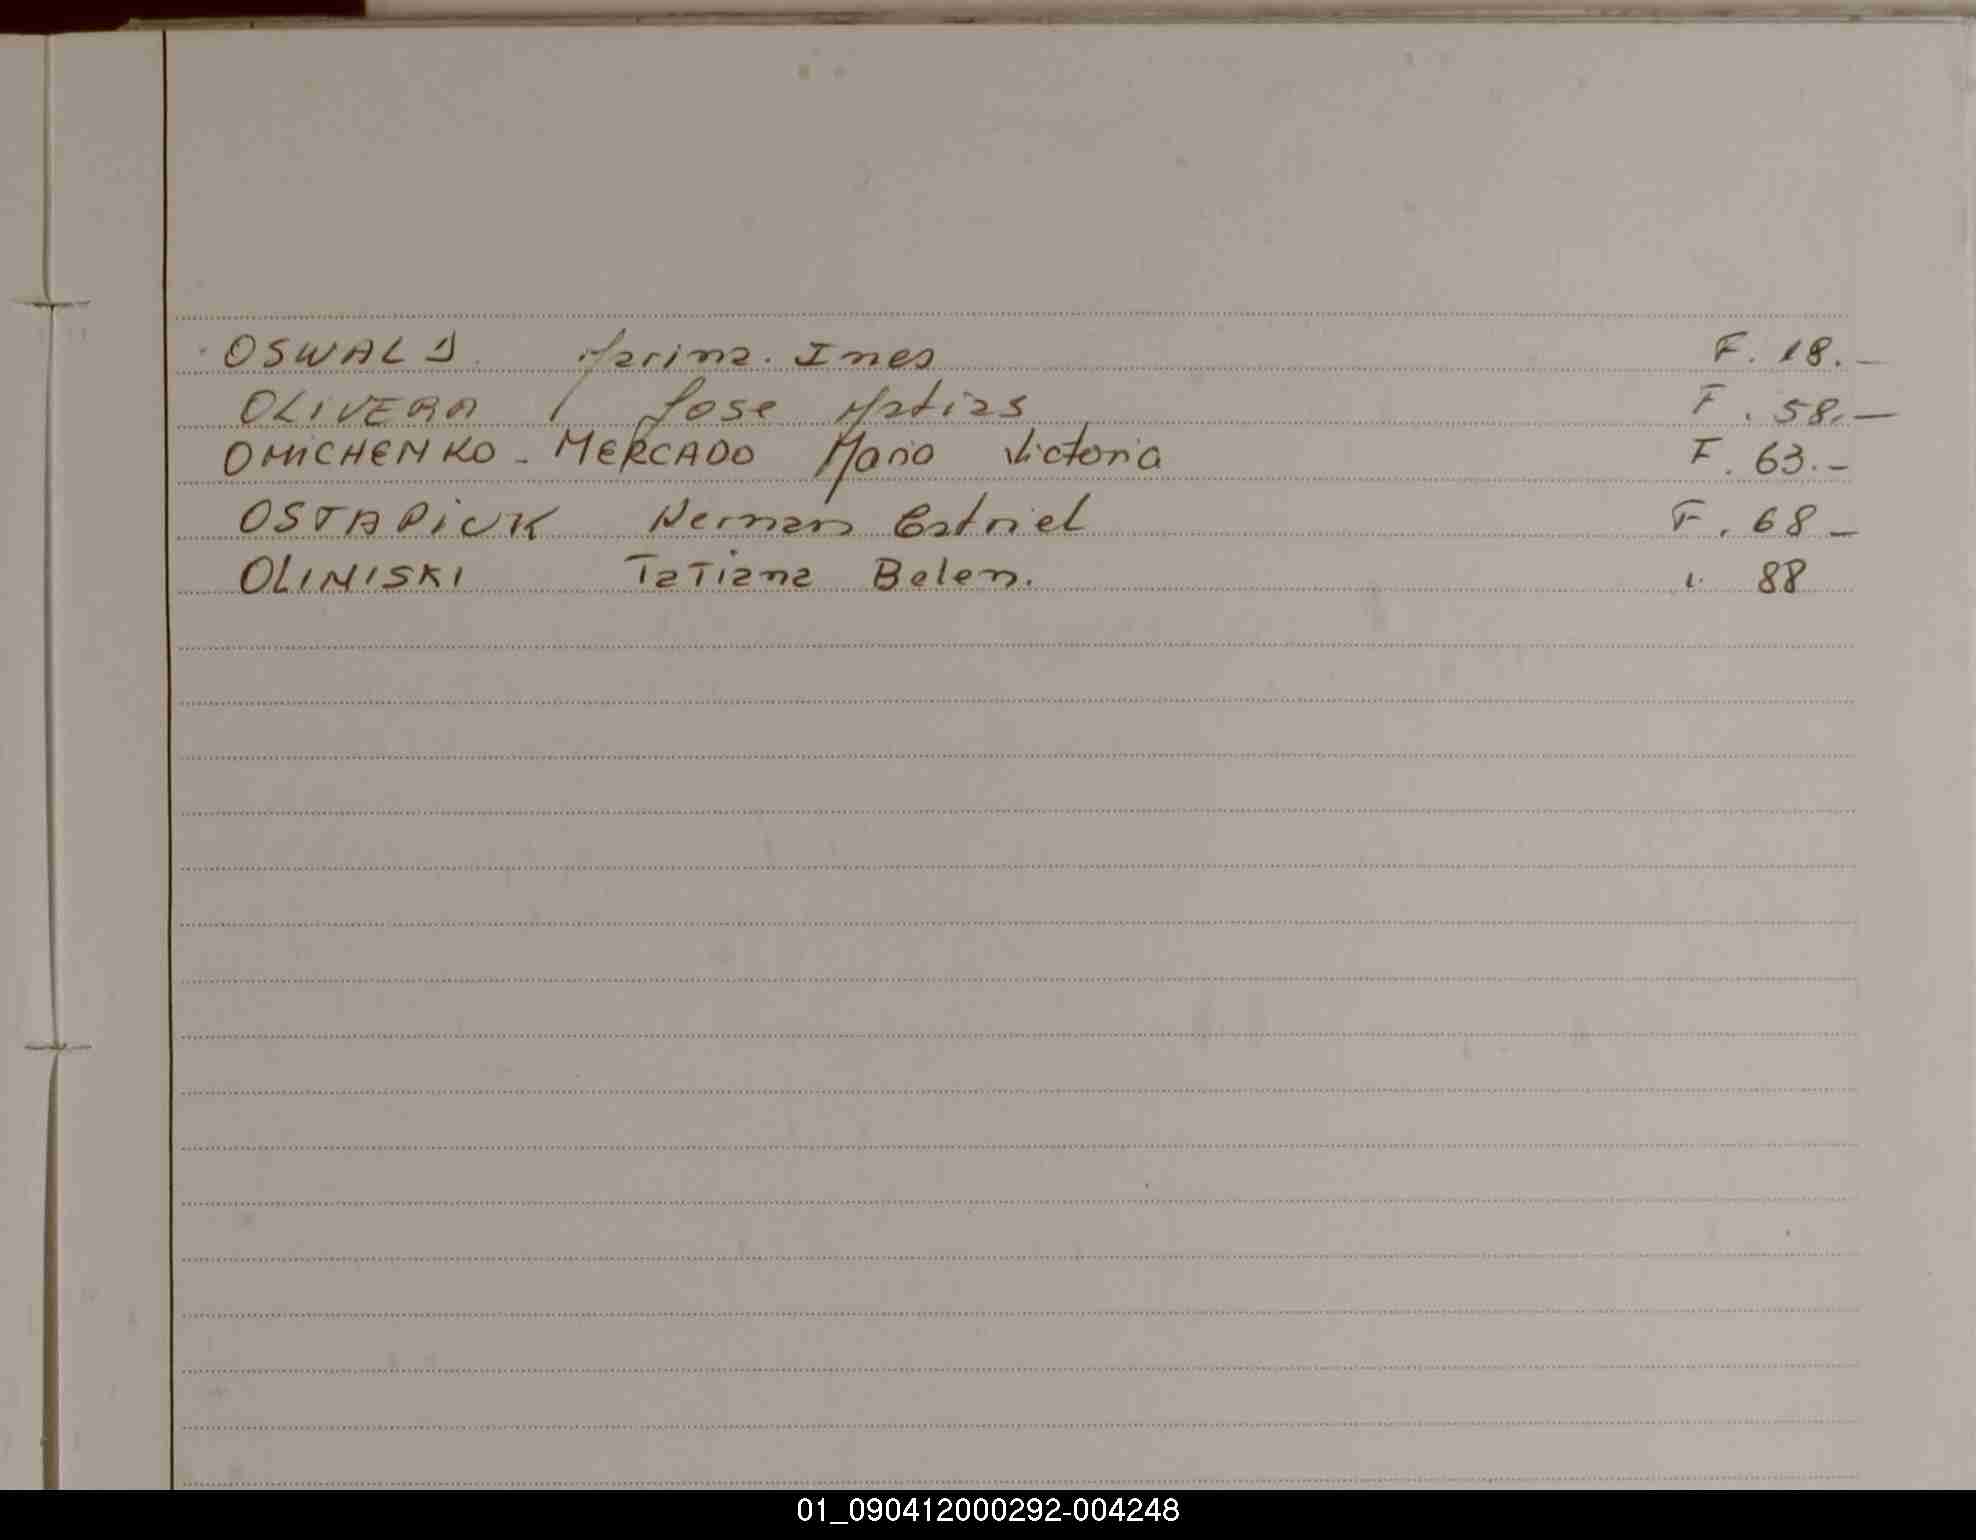 OSWALD Marina Ines F. 18.-
OLIVERA José Matias F. 58.-
OMICHENKO - MERCADO Maria Victoria F. 63.-
OSTAPIUK Hernan Gabriel F. 68 -
OLINISKI Tatiana Belen. 88
01_090412000292-004248